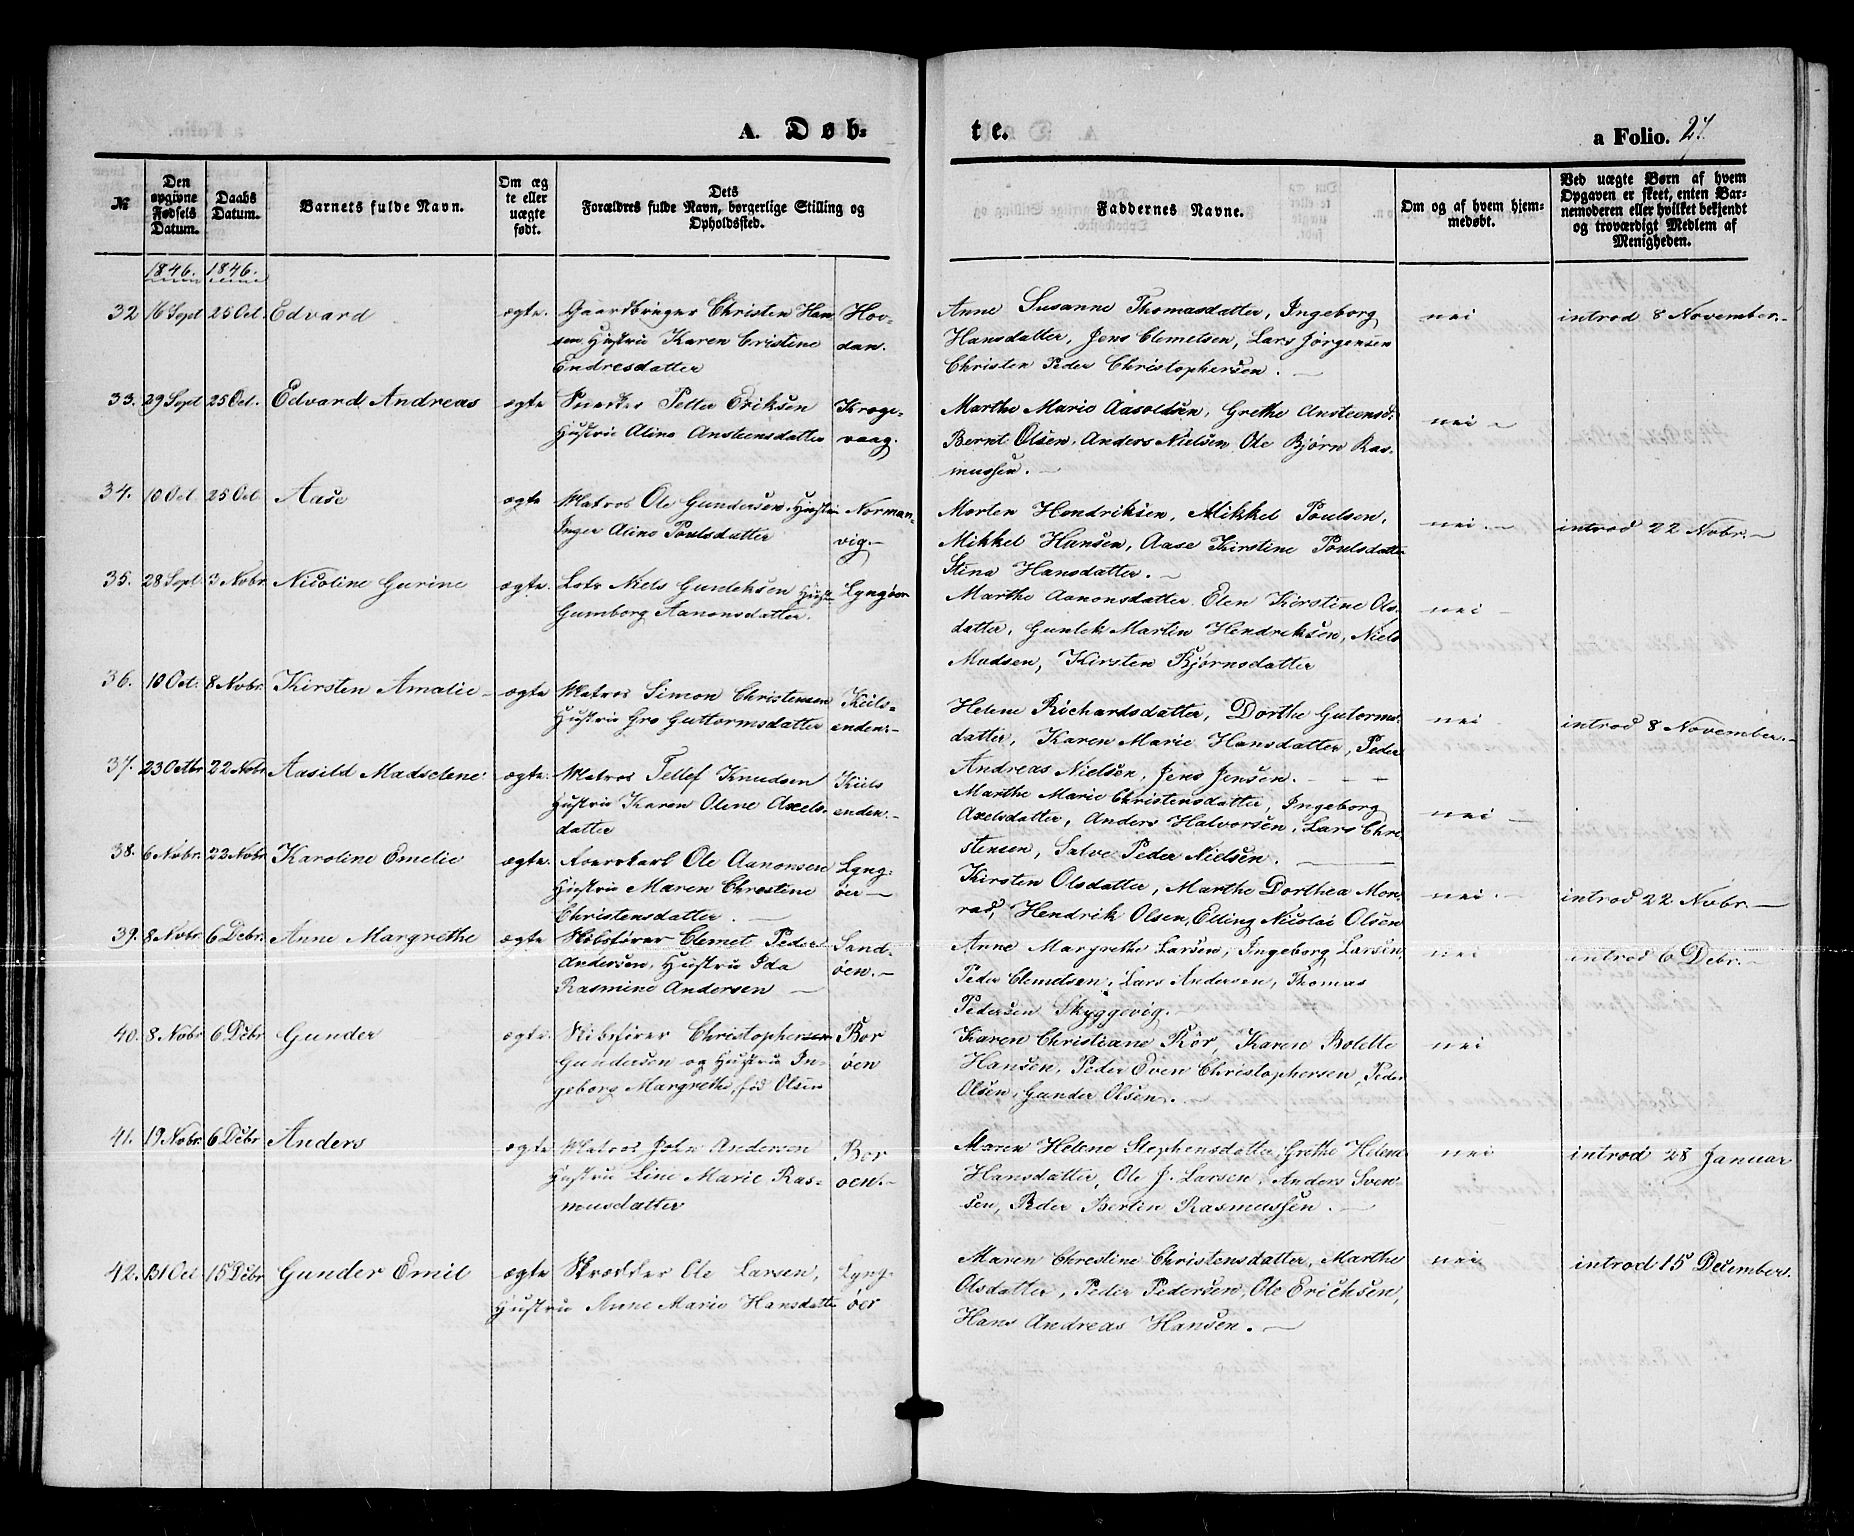 A. Døb-
te.
a Folio. 27.
№
Den opgivne Fødsels Datum.
Daabs Datum.
Barnets fulde Navn.
Om ægte eller uægte født.
Dets Forældres fulde Navn, borgerlige Stilling og Opholdssted.
Faddernes Navne.
Om og af hvem hjemmedøbt.
Ved uægte Børn af hvem Opgaven er skeet, enten Barnemoderen eller hvilket bekjendt og troværdigt Medlem af Menigheden.
1846. 1846.
32 16 Sept 25 Oct. Edvard ægte. Gaardbruger Christen Han Hov-
sen Hustru Karen Cristine dan.
Endresdatter
Anne Susanne Thomasdatter, Ingeborg nei introd 8 November.
Hansdatter, Jens Clemetsen, Lars Jørgensen
Christen Peder Christophersen.
33. 29 Sept 25 Oct. Edvard Andreas ægte Petter Eriksen Krage-
Hustru Aline Ansteensdatter vaag.
Marthe Marie Aasoldsen, Grethe Ansteensd. nei
Bernt Olsen, Anders Nielsen Ole Bjørn Ras-
mussen.
34. 10 Oct 25 Oct Aase ægte Matros Ole Gundersen, Hustru Norman-
Inger Aline Poulsdatter vig.
Morten Hendriksen, Mikkel Poulsen, nei. introd 22 Nobr.
Mikkel Hansen, Aase Kirstine Poulsdatter
Stina Hansdatter.
35. 28 Sept. 3 Nobr. Nicoline Gurine ægte. Lods Niels Gunleksen Hust Lyngøer
Gumborg Aanonsdatter.
Marthe Aanonsdatter, Elen Kirstine Ols- nei
datter, Gunlek Martin Hendriksen, Niels
Madsen, Kirsten Bjørnsdatter
36. 10 Oct. 8 Nobr. Kirsten Amalie ægte Matros Simon Christensen Kiils-
Hustru Gro Guttormsdatter enden.
Helene Richardsdatter, Dorthe Gutorms- nei introd 8 November.
datter, Karen Marie Hansdatter, Peder
Andreas Nielsen, Jens Jensen.
37. 23 Octbr 22 Nobr. Aasild Madselene ægte. Matros Tellef Knudsen Kiils
Hustru Karen Olene Axels- enden.
datter
Marthe Marie Christensdatter, Ingeborg
Axelsdatter, Anders Halvorsen, Lars Chri- nei
stensen, Salve Peder Nielsen.
38. 6 Nobr. 22 Nobr. Karoline Emelie ægte. Ole Aanonsen Lyng-
Hustru Maren Christine øer
Christensdatter.
Kirsten Olsdatter, Marthe Dorthea Mon- nei. introd 22 Nobr.
rad, Hendrik Olsen, Elling Nicolai Olsen
39. 8 Nobr. 6 Debr. Anne Margrethe ægte Skibsfører Clemet Peder Sand-
Andersen, Hustru Ida øen.
Rasmine Andersen
Anne Margrethe Larsen, Ingeborg Larsen, nei introd 6 Debr.
Peder Clemetsen, Lars Andersen, Thomas
Pedersen Skyggevig.
40. 8 Nobr 6 Debr Gunder ægte. Skibsfører Christophersen Bor
Gundersen og Hustru In- øen
geborg Margrethe, fød Olsen
Karen Christiane Rör, Karen Bolette nei
Hansen, Peder Even Christophersen, Peder
Olsen, Gunder Olsen.
41. 19 Nobr. 6 Debr Anders ægte Matros John Andersen Bor
Hustru Line Marie Ras- øen.
musdatter
Maren Helene Stephensdatter, Grethe Helene nei introd 28 Januar
Hansdatter, Ole J. Larsen, Anders Sven-
sen, Peder Bertin Rasmussen.
42. 31 Oct 15 Debr Gunder Emil ægte Skrædder Ole Larsen, Lyng-
Hustru Anne Marie Hansdatter øer
Maren Christine Christensdatter, Marthe nei introd 15 December.
Olsdatter, Peder Pedersen, Ole Erichsen,
Hans Andreas Hansen.